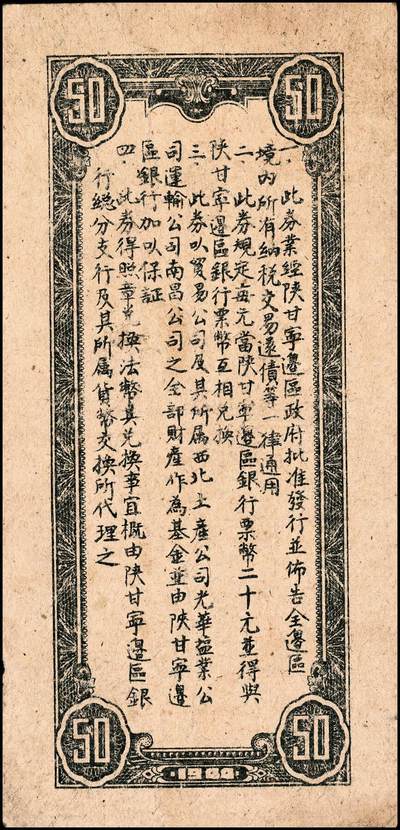 50 50
一．此券業經陝甘寧邊區政府批准發行並佈告全邊區
境內所有納稅交易還債等一律通用
二．此券規定每元當陝甘寧邊區銀行票幣二十元並得與
陝甘寧邊區銀行票幣互相兌換
三．此券以貿易公司及其所屬西北土產公司光華鹽業公
司運輸公司南昌公司之全部財產作為基金並由陝甘寧邊
區銀行加以保証
四．此券得照章兌換法幣其兌換事宜概由陝甘寧邊區銀
行總分支行及其所屬貨幣交換所代理之
50 50